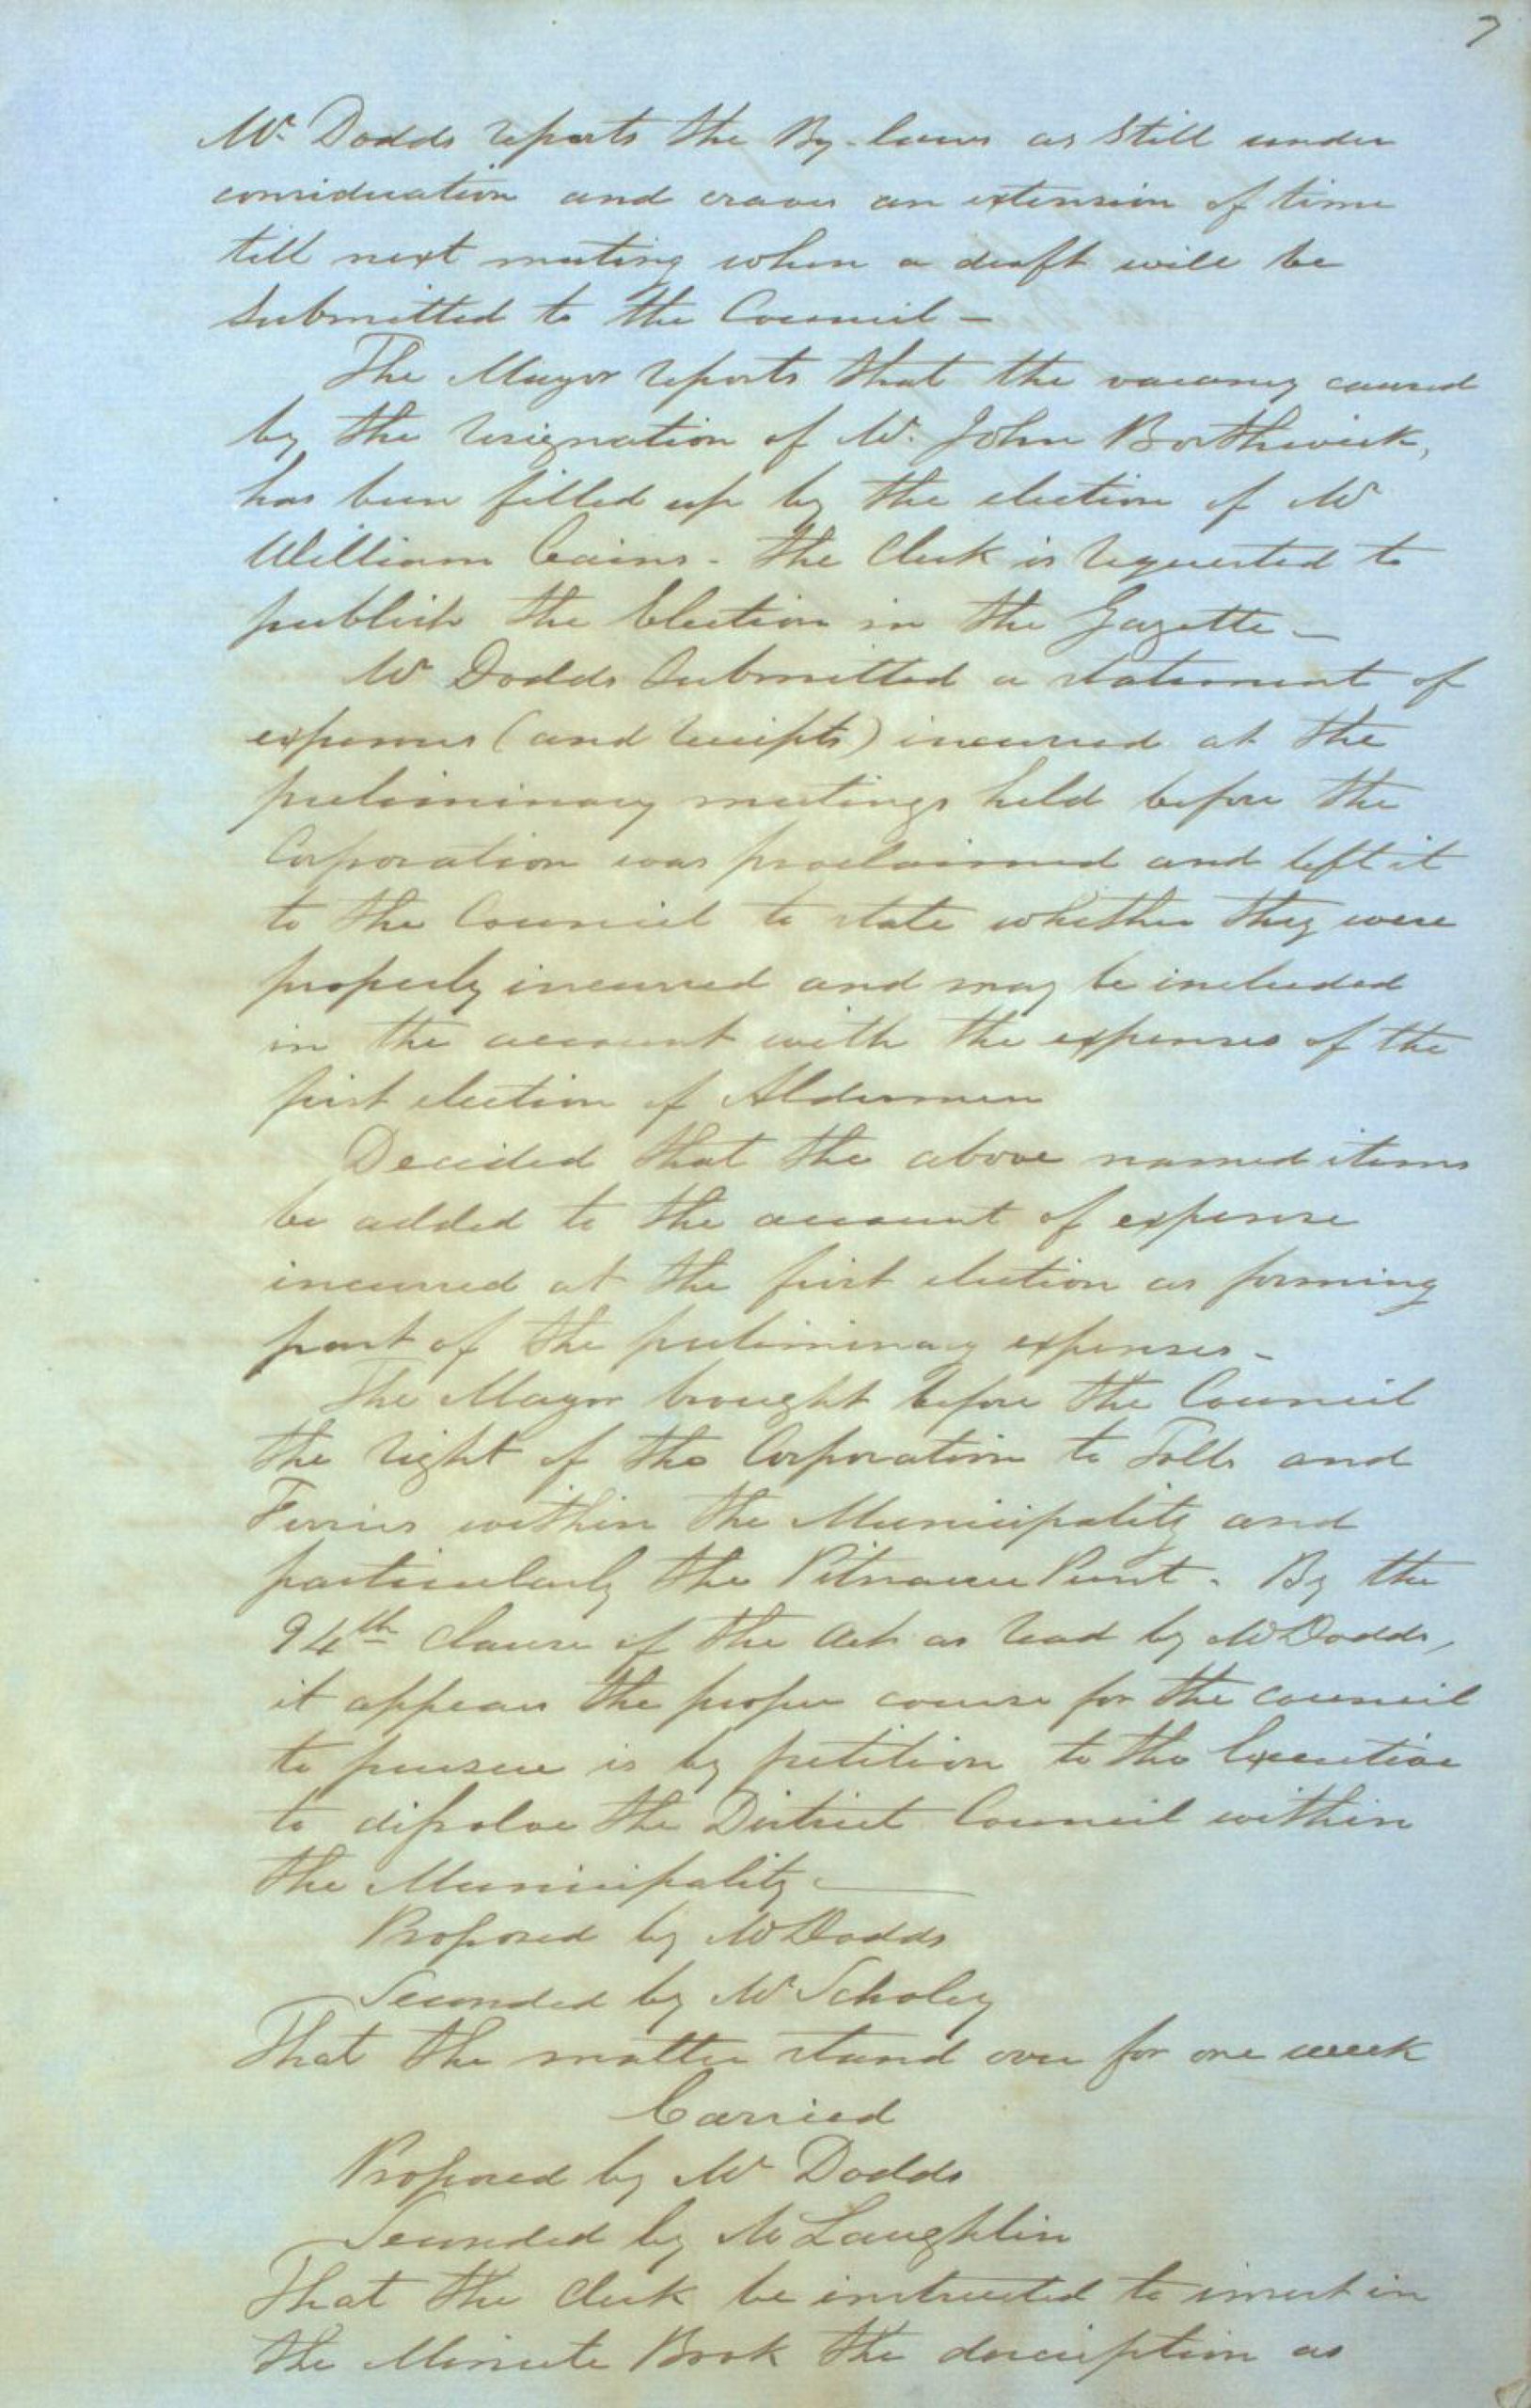 7
Mr Dodds reports the By-laws as still under
consideration and craves an extension of time
till next meeting when a draft will be
submitted to the Council -
The Mayor reports that the vacancy caused
by the resignation of Mr. John Borthwick,
has been filled up by the election of Mr
William Cains - The Clerk is requested to
publish the Election in the Gazette -
Mr Dodds submitted a statement of
expenses (and receipts) incurred at the
preliminary meetings held before the
Corporation was proclaimed and left it
to the Council to state whether they were
properly incurred and may be included
in the account with the expenses of the
first election of Aldermen
Decided that the above named items
be added to the account of expense
incurred at the first election as forming
part of the preliminary expenses -
The Mayor brought before the Council
the right of the Corporation to Tolls and
Ferries within the Municipality and
particularly the Pitnacree Punt - By the
94th Clause of the Act as read by Mr Dodds,
it appears the proper course for the Council
to pursue is by petition to the Executive
to dissolve the District Council within
the Municipality -
Proposed by Mr Dodds
Seconded by Mr Scholey
That the matter stand over for one week
Carried
Proposed by Mr Dodds
Seconded by Mr Laughlin
That the Clerk be instructed to insert in
the Minute Book the description as